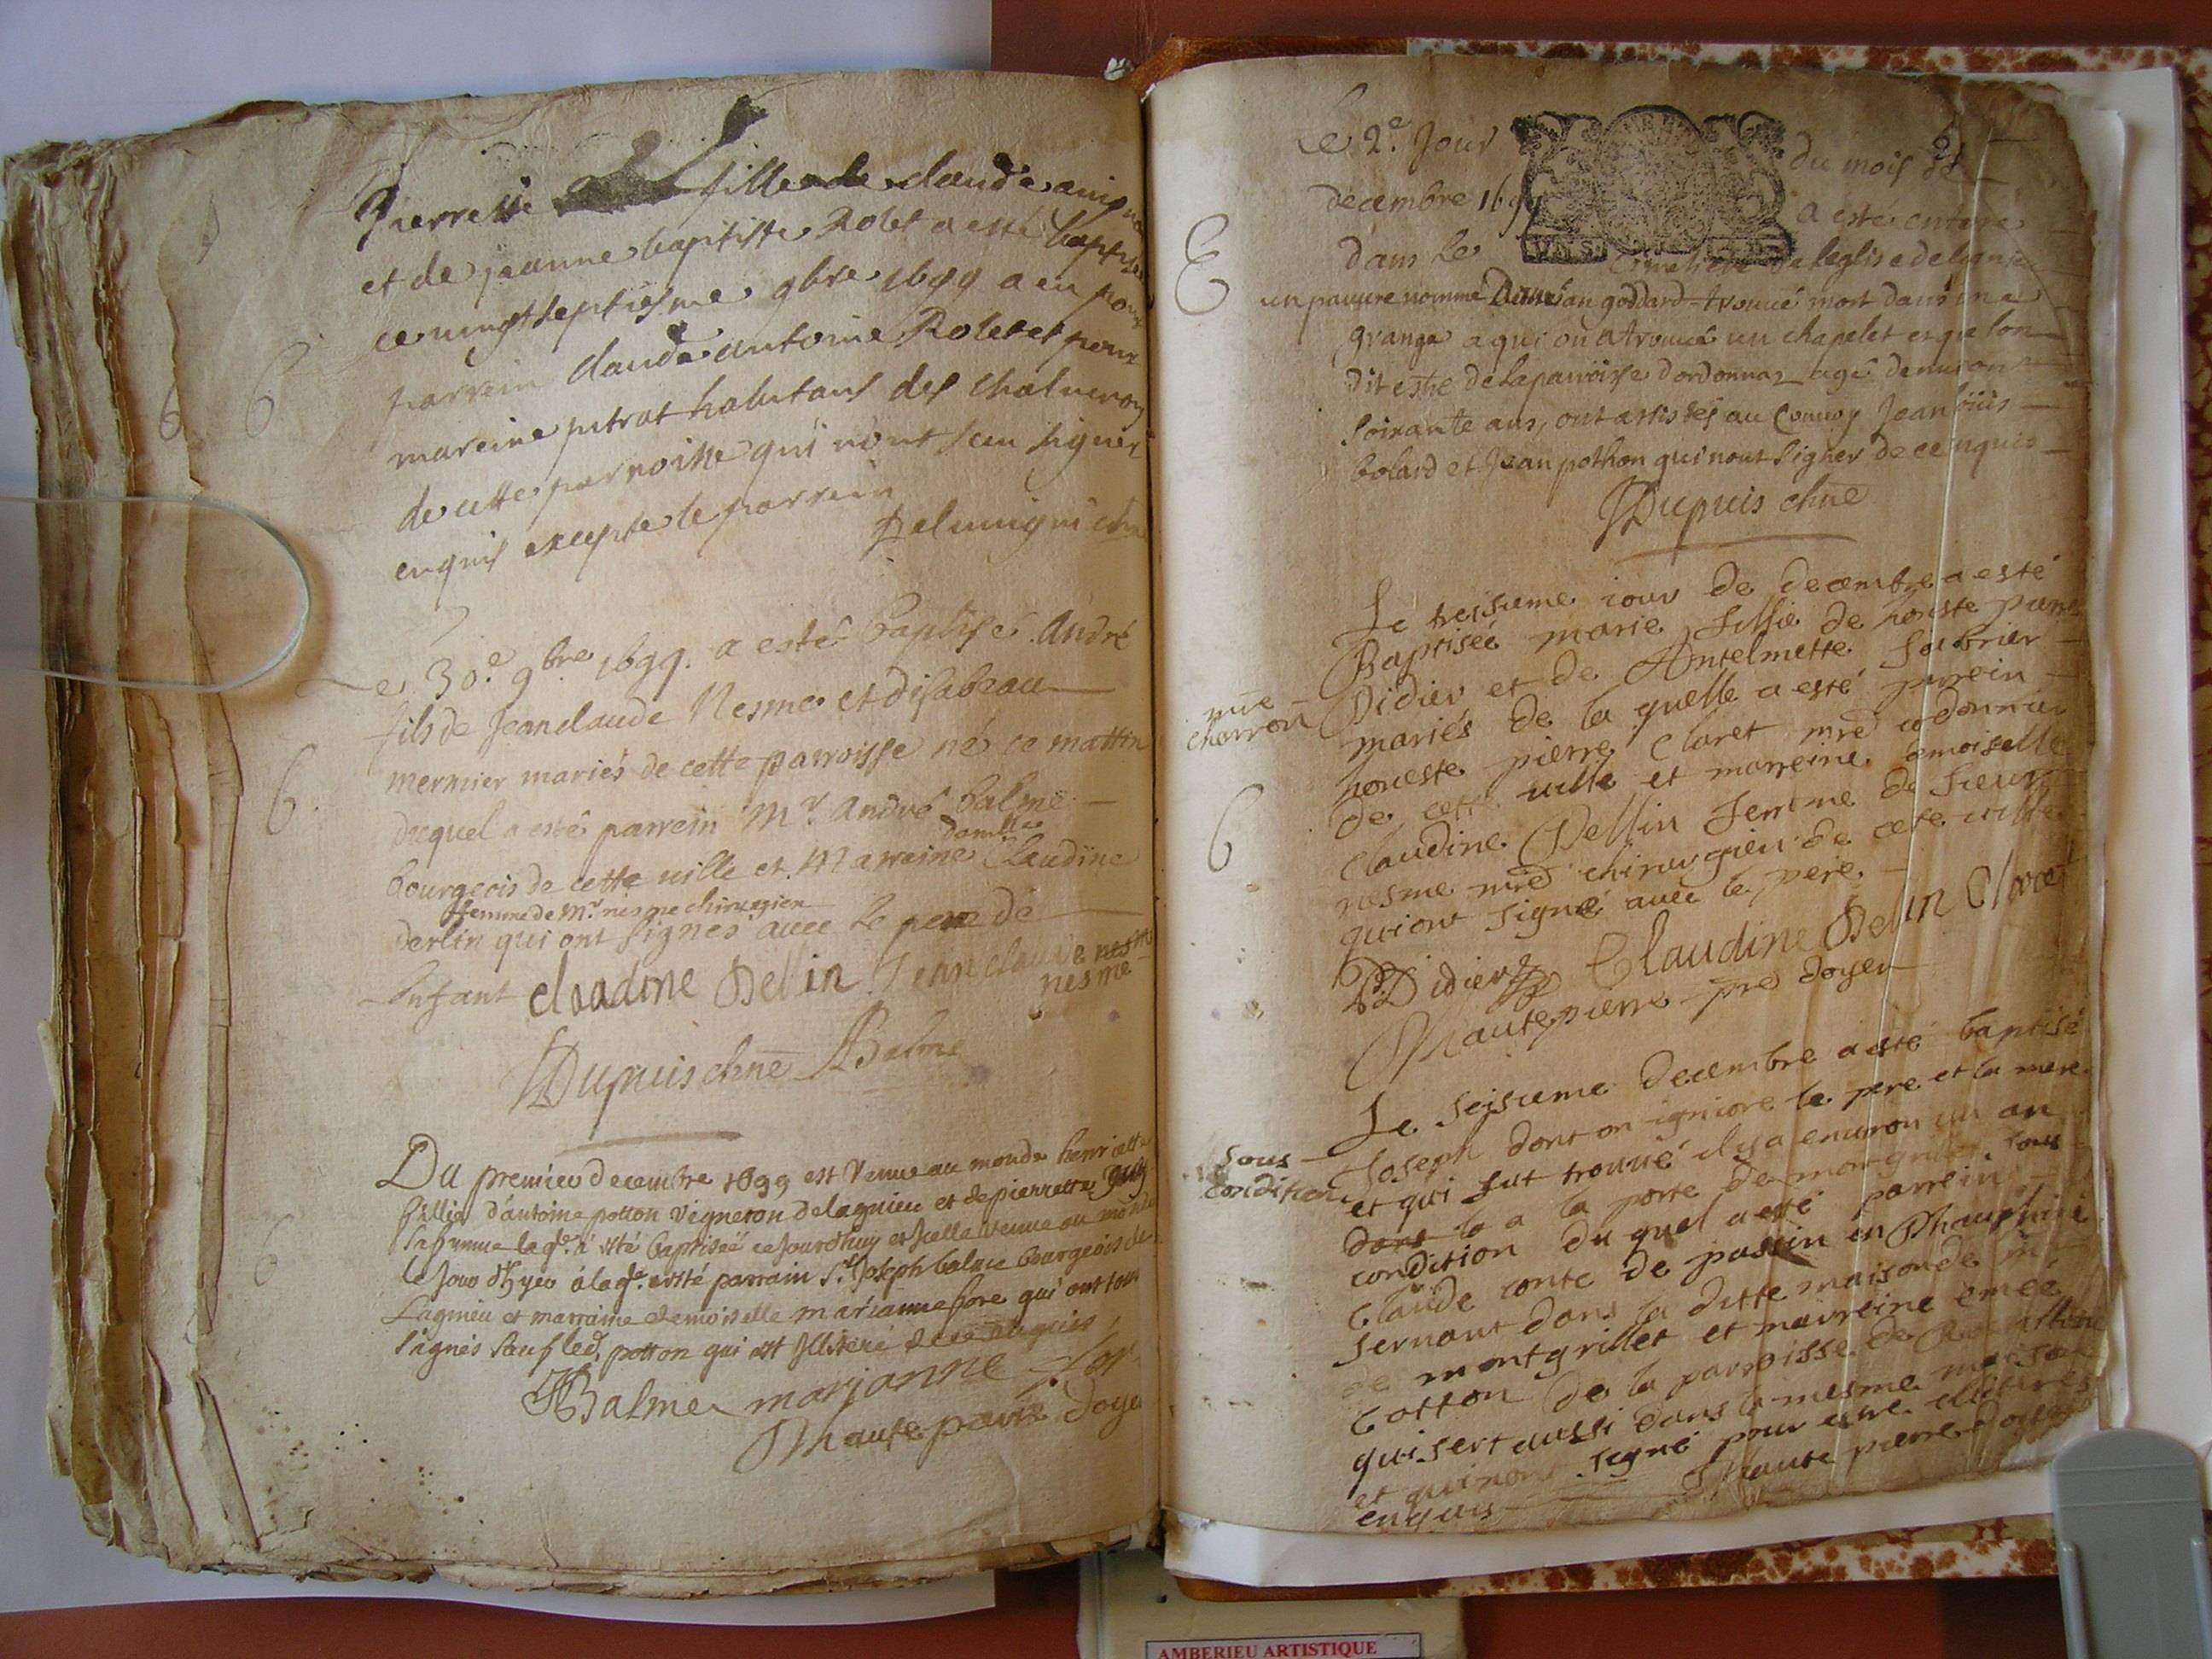 Pierre fille de claude
et de jeanne baptiste Rolet a esté baptisée
ce vingt septiesme 9bre 1699 a eu pour
parrein claude antoine Rolet et pour
mareine pitrat habitans des
de cette parroisse qui n'ont sceu signer
enquis excepté le parrein
Le 30.e 9bre 1699. a esté Baptisé André
fils de Jean claude Nesme et disabeau
mermier mariés de cette parroisse né ce mattin
duquel a esté parrein Mr André balme
damlle
bourgeois de cette ville et Marraine Claudine
femme de Mr nesme chirurgien
derlin qui ont signés avec le pere de
Lenfant claudine Dellin Jean claude nesm
nesme
Dupuis chne ABalme
Du premier decembre 1699 est Venue au monde henriette
fillie d'antoine potton vigneron de lagnieu et de pierrette
sa femme laqle à esté baptiseé ce jourdhuy et icelle venue au monde
le jour d'hyer à laqle a esté parrain Sr Joseph balme bourgeois de
Lagnieu et marraine demoiselle marianne fore qui ont tous
signés sauf led. potton qui est Illiteré de ce enquis,
JBalme marjanne for
Mautepierre doye
Le 2.e Jour du mois de
decembre 1699 a esté enteré
dans le Cimetiere de leglise de
un pauvre nommé goddard trouvé mort dans une
grange a qui on a trouvé un chapelet et que lon
dit estre de la parroisse dordonnaz agé denviron
soixante ans, ont assistés au Convoy Jean loüis
bolard et Jean pothon qui nont signer de ce enquis
Dupuis chne
Le treisieme iour de decembre a esté
Baptisée marie fillie de honeste pierre
Didier et de Antelmette fabrier
mariés de la quelle a esté parrein
honeste pierre Claret mre codonnier
de cette ville et marreine demoiselle
Claudine Dellin femme de sieur
nesme mre chirurgien de cete ville
qui ont signé avec le pere.
P Didier Claudine Dellin Claret
Mautepierre pre doyen
charron
Le seisieme decembre a esté baptisé
Joseph dont on igniore le pere et la mere
et qui fut trouvé il y a environ un an
dans la a la porte de montgrillet sous
condition du quel a esté parrein
Claude conte de passin en Dhauphiné
servant dans la ditte maison de mr
de montgrillet et marreine emeé
Cotton de la parroisse de
qui sert aussi dans la mesme maison
et qui nont signé pour estre illiterés
enquis Mautepierre doyen
sous
condition
AMBERIEU ARTISTIQUE